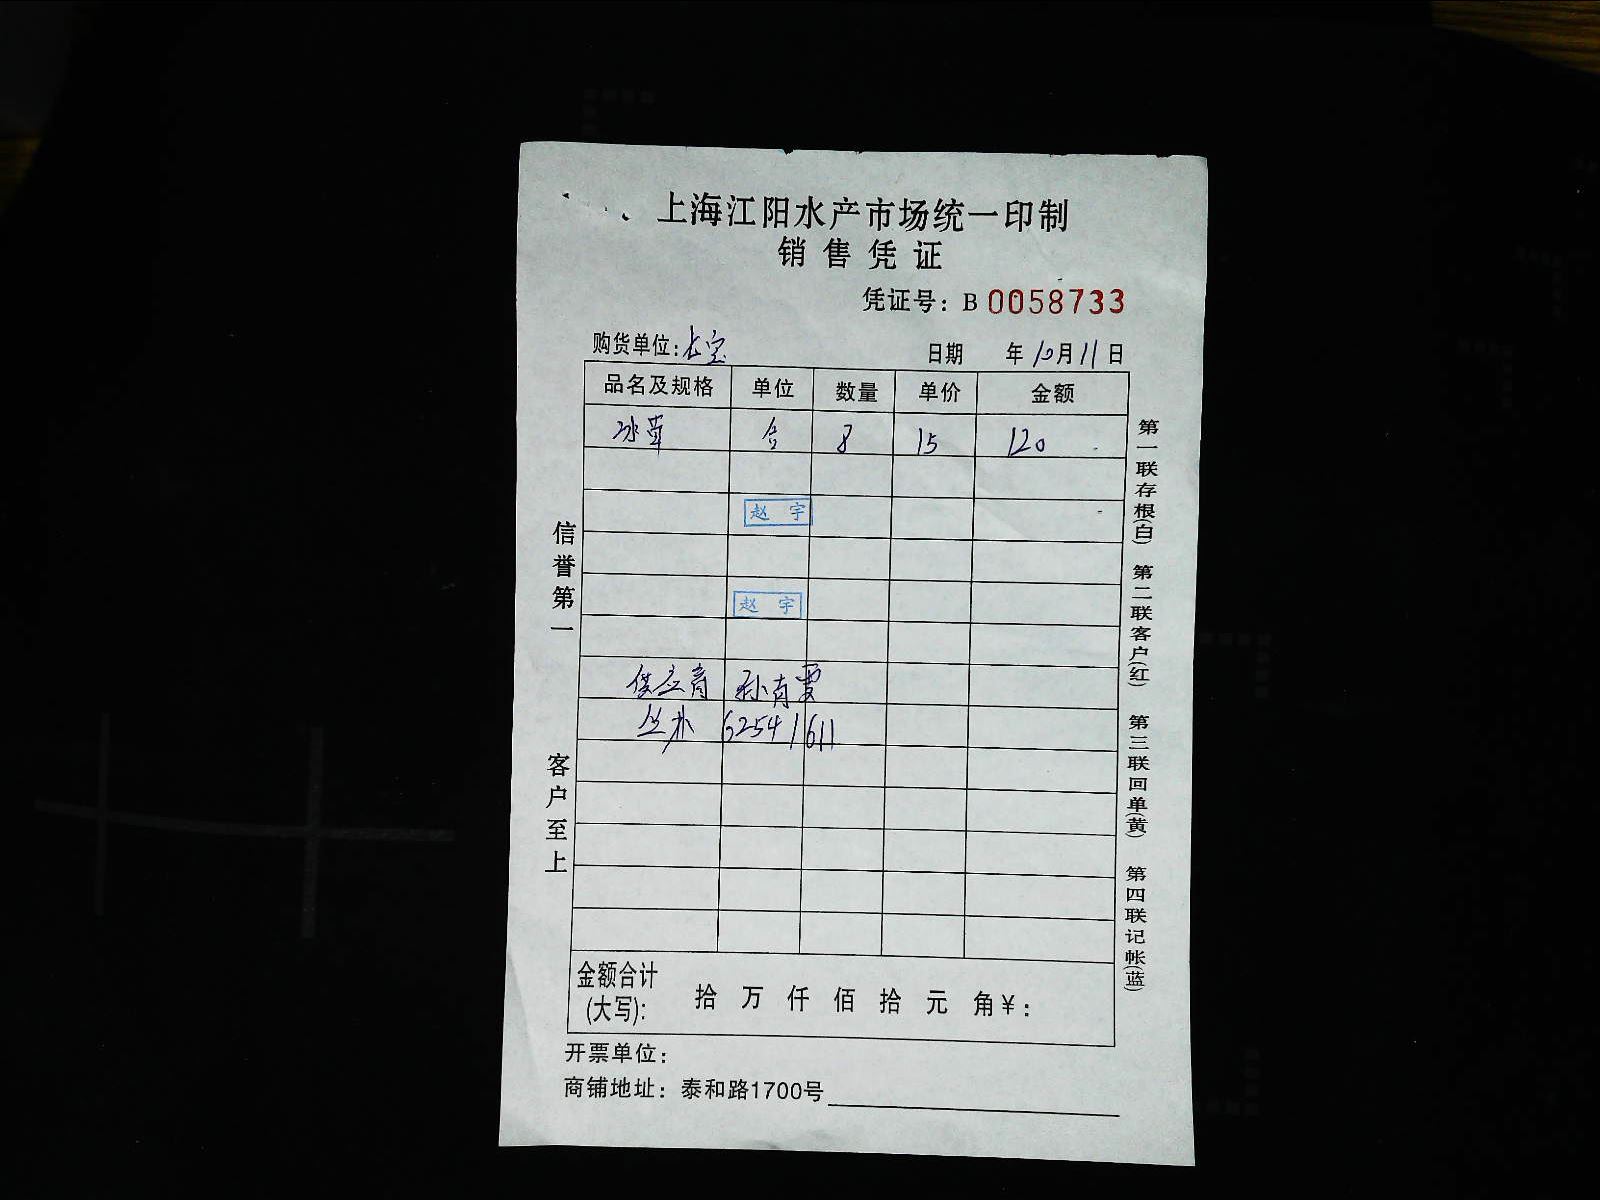 上海江阳水产市场统一印制
销售凭证
凭证号：B 0058733
购货单位：长宝 日期 年10月11日
品名及规格 单位 数量 单价 金额
冰草 合 8 15 120
赵 宇
赵 宇
供应商 孙肖雯
62541611
金额合计
(大写): 拾 万 仟 佰 拾 元 角￥:
开票单位：
商铺地址：泰和路1700号
信誉第一
客户至上
第一联存根(白)
第二联客户(红)
第三联回单(黄)
第四联记帐(蓝)